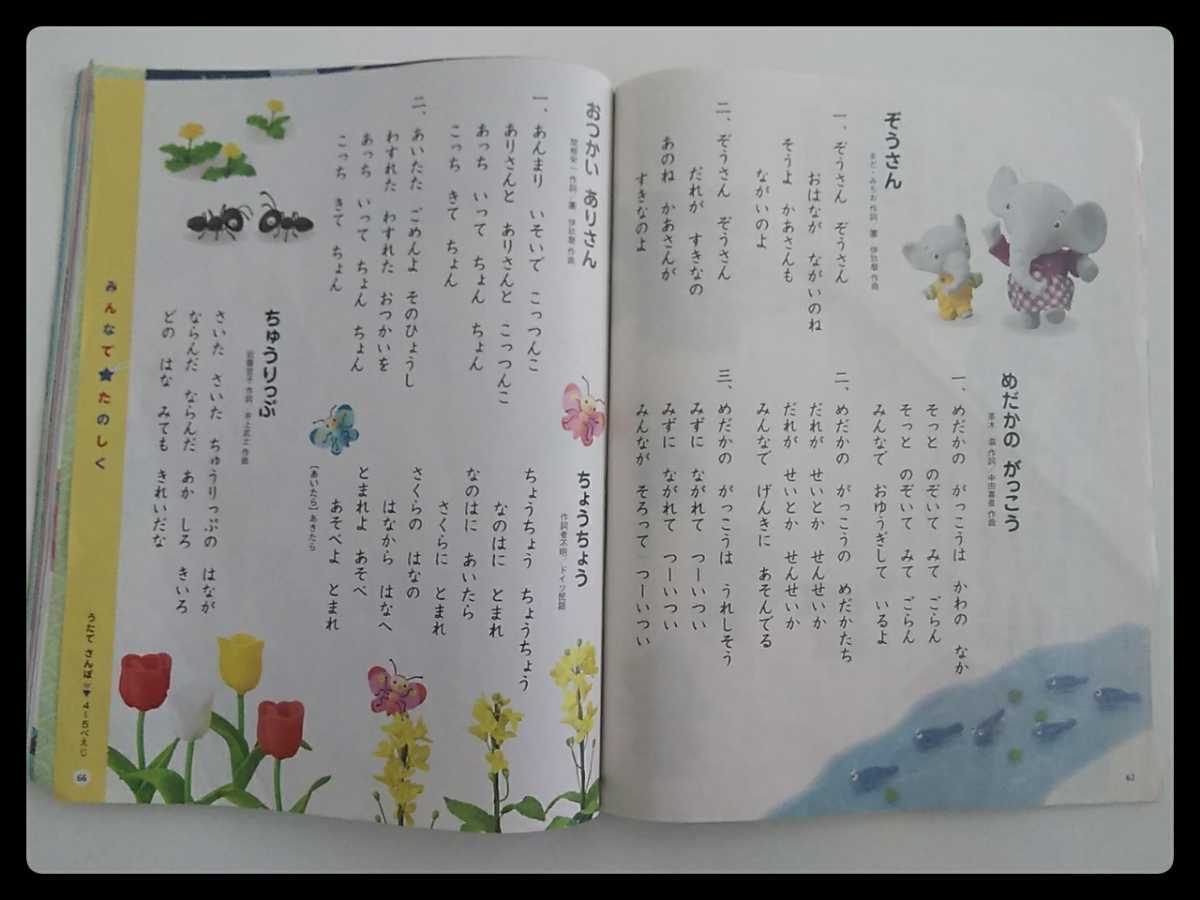 ぞうさん
まど・みちお 作詞／團 伊玖磨 作曲
一、ぞうさん ぞうさん
おはなが ながいのね
そうよ かあさんも
ながいのよ
二、ぞうさん ぞうさん
だれが すきなの
あのね かあさんが
すきなのよ
めだかの がっこう
茶木 滋 作詞／中田喜直 作曲
一、めだかの がっこうは かわの なか
そっと のぞいて みて ごらん
そっと のぞいて みて ごらん
みんなで おゆうぎして いるよ
二、めだかの がっこうの めだかたち
だれが せいとか せんせいか
だれが せいとか せんせいか
みんなで げんきに あそんでる
三、めだかの がっこうは うれしそう
みずに ながれて つーいつい
みずに ながれて つーいつい
みんなが そろって つーいつい
おつかい ありさん
関根栄一 作詞／團 伊玖磨 作曲
一、あんまり いそいで こっつんこ
ありさんと ありさんと こっつんこ
あっち いって ちょん ちょん
こっち きて ちょん
二、あいたた ごめんよ そのひょうし
わすれた わすれた おつかいを
あっち いって ちょん ちょん
こっち きて ちょん
ちょうちょう
作詞者不明／ドイツ民謡
ちょうちょう ちょうちょう
なのはに とまれ
なのはに あいたら
さくらに とまれ
さくらの はなの
はなから はなへ
とまれよ あそべ
あそべよ とまれ
（あいたら）あきたら
ちゅうりっぷ
近藤宮子 作詞／井上武士 作曲
さいた さいた ちゅうりっぷの はなが
ならんだ ならんだ あか しろ きいろ
どの はな みても きれいだな
みんなで★たのしく
うたで さんぽ♥4〜5ぺえじ
66